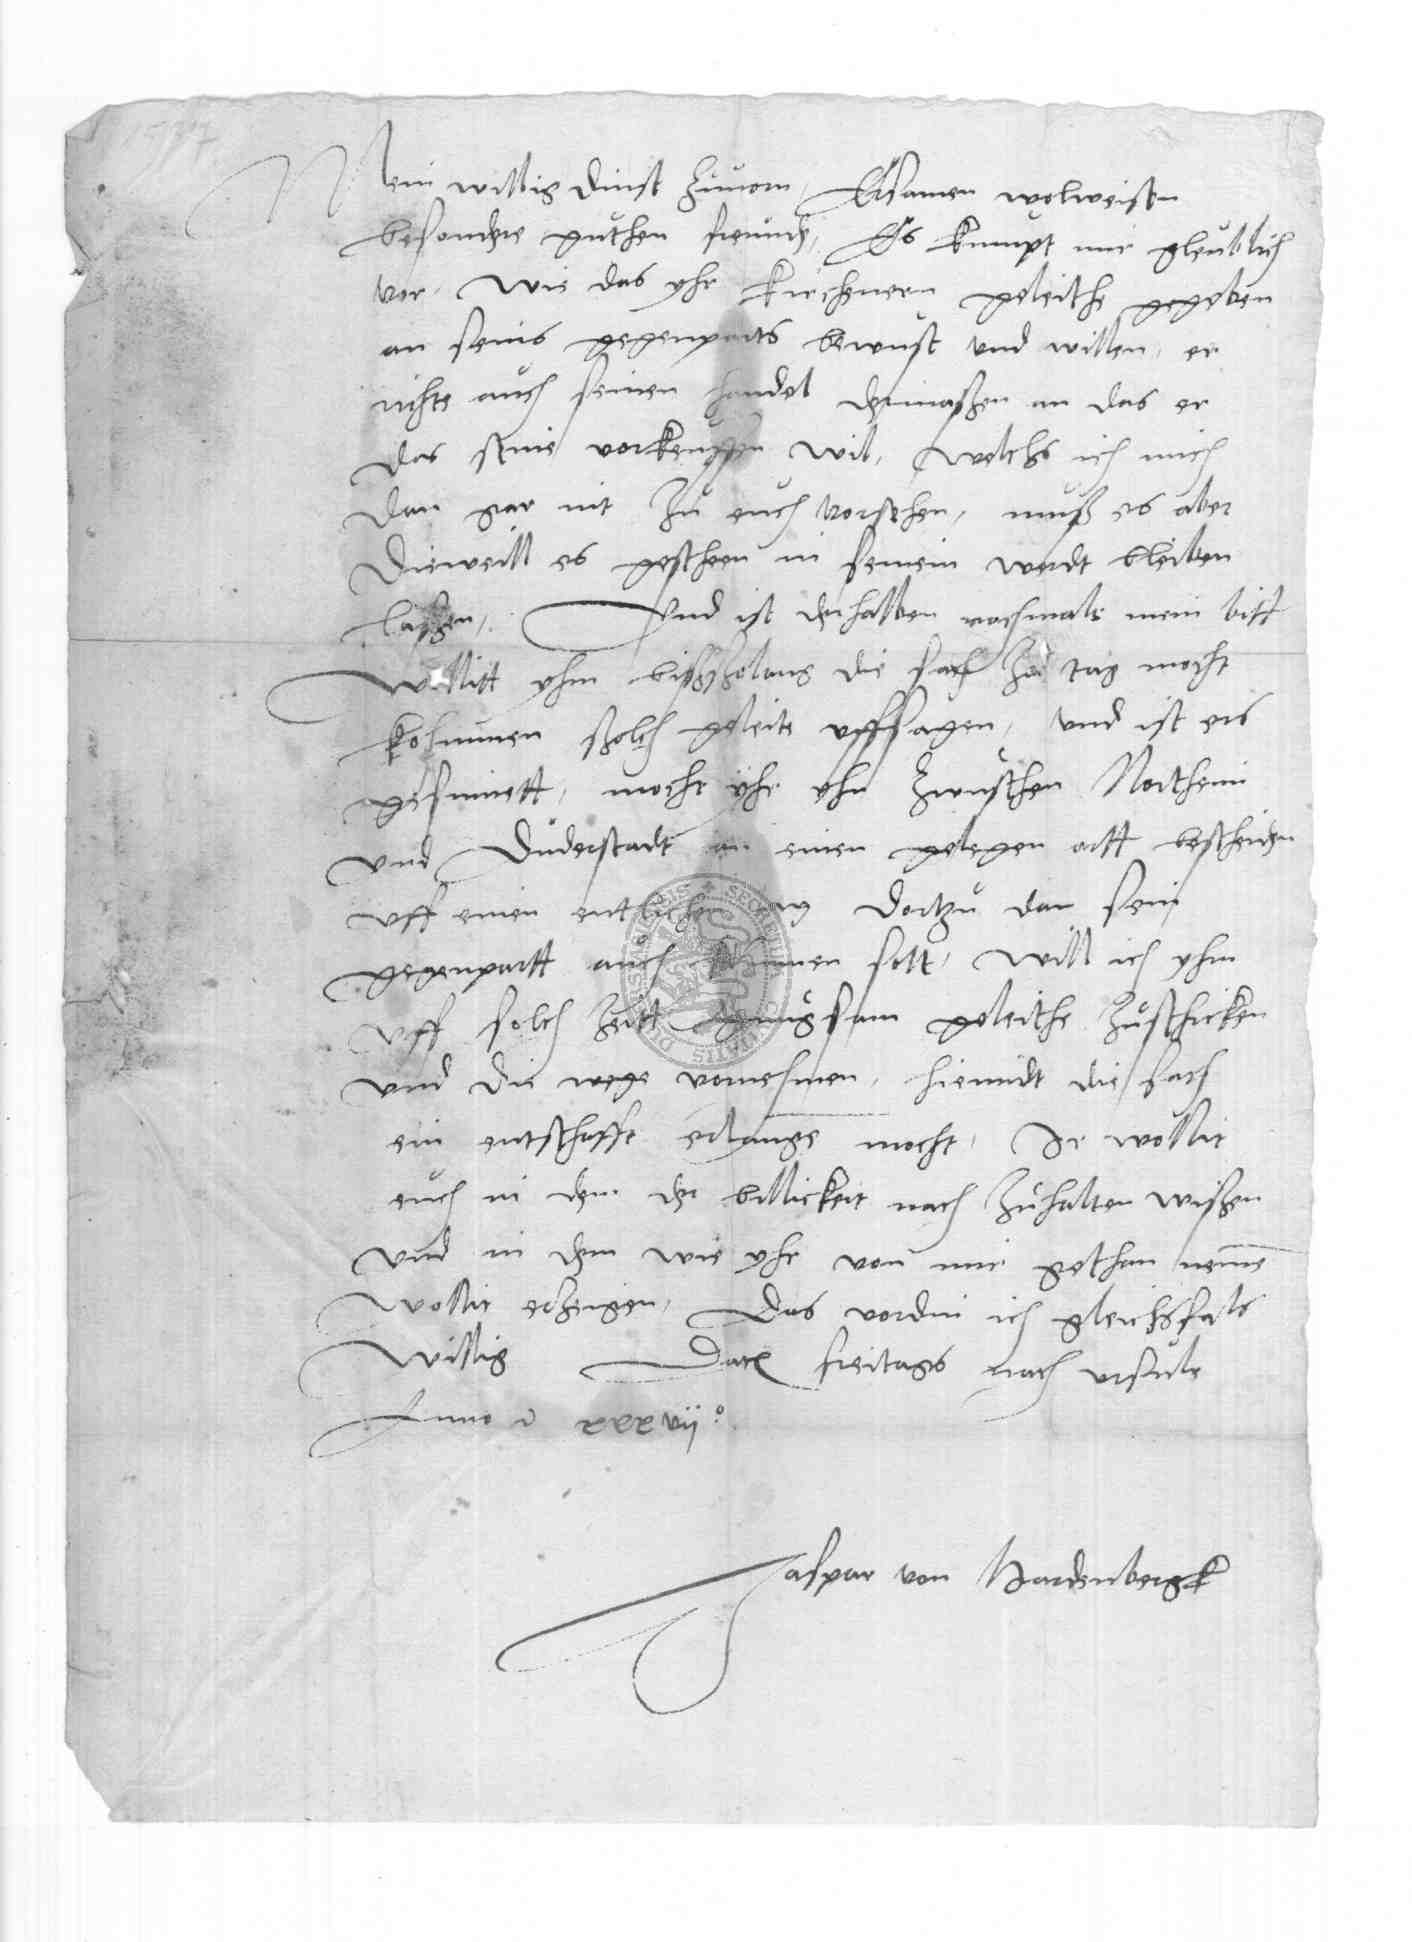 1537
Mein willig dinst zuuorn, Ersamen wolweisen
besondere guthen freunde, Es kumpt mir gleublich
vor, wie das yhr Kirchenern geleithe gegeben
an seins gegenparts bewust und willen, er
richte auch seinen handel dermaßen an das er
das seine vorkeuffen wil, welchs ich mich
dan gar nit zu euch vorsehen, muß es aber
Dieweill es gescheen in seinem werdt bleiben
laßen, Und ist derhalben nochmals mein bitt
wollitt yhm bißsolang die sach zu tag mocht
kohmmen solch geleite uffsagen, und ist ers
gesinnett, mocht yhr yhn zwuschen Northeim
und Duderstadt an einen gelegen ortt bescheiden
uff einen entlichen tag dortzu dan sein
gegenpartt auch kommen solt, will ich yhm
uff solch zeitt gnugsam geleithe zuschicken
und die wege vornehmen, hiemidt die sach
ein entschafft erlange mocht, Ir wollit
euch in dem der billickeit nach zuhalten wißen
und in dem wie yhr von mir gethan neme
wollit erzeigen, Das vordin ich gleichsfals
willig Dat freitags nach ursule
Anno d xxxvii°
Jaspar von Hardenbergk